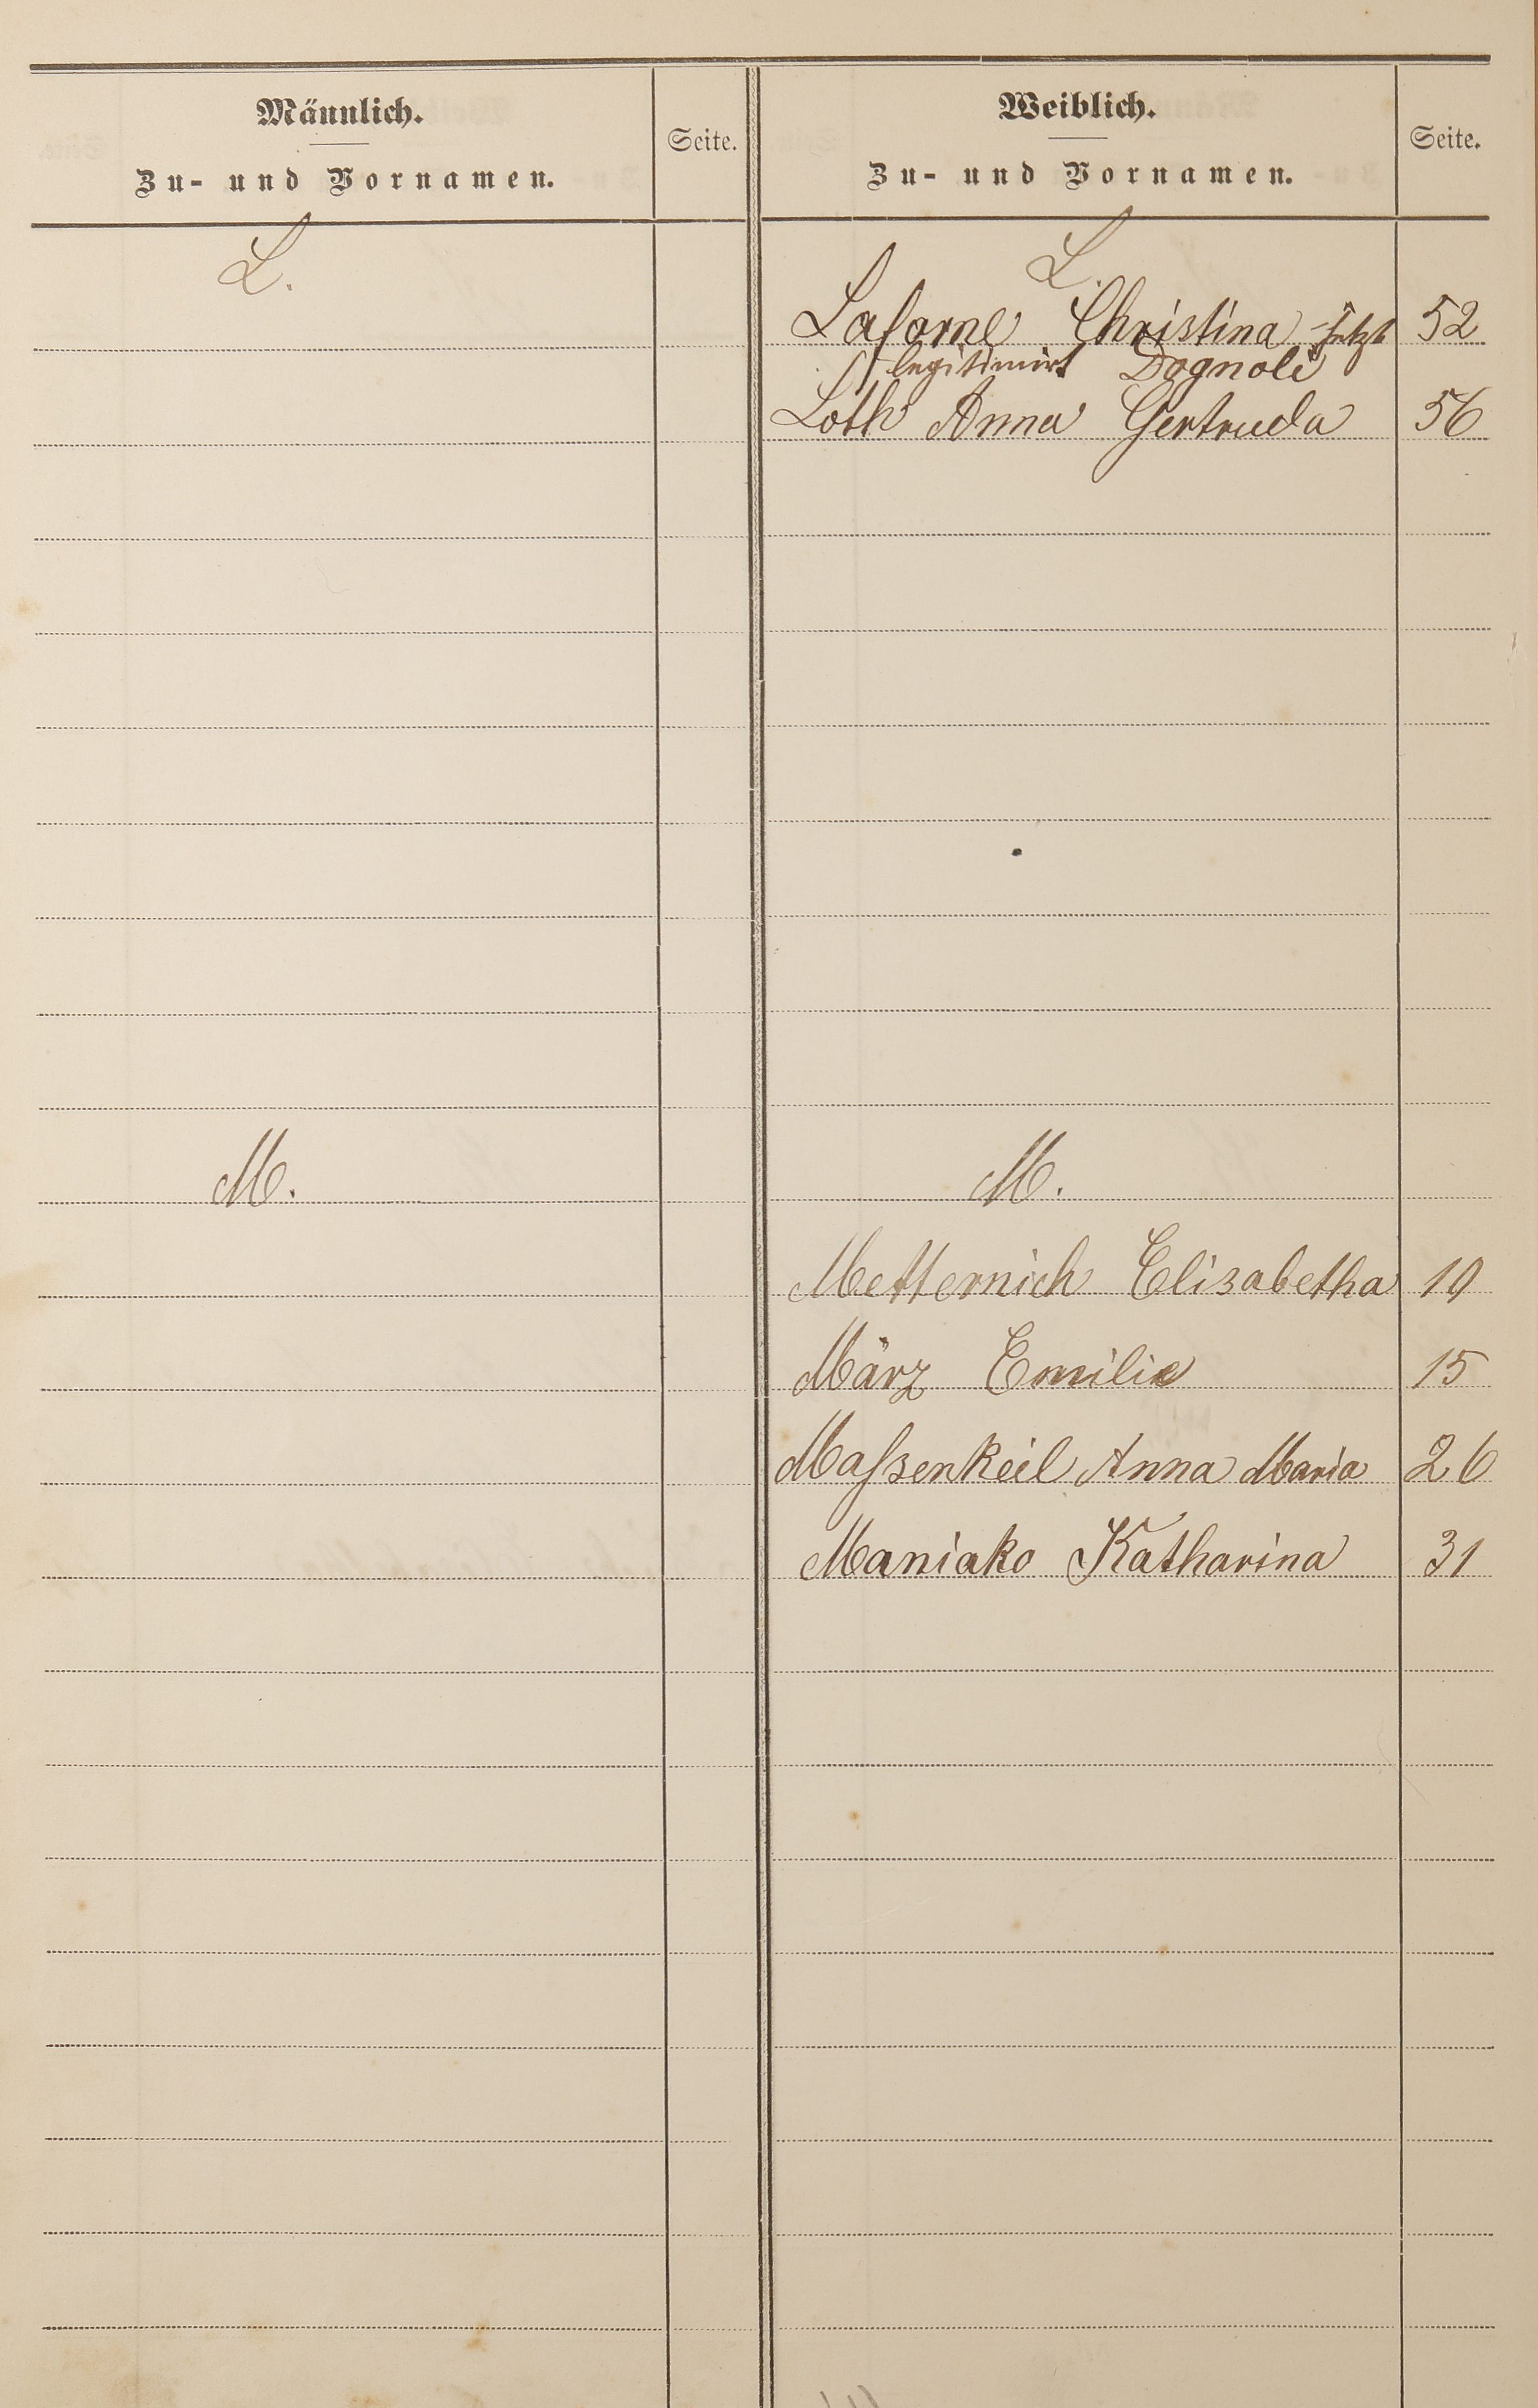 Männlich.
Zu- und Vornamen.
Seite.
Weiblich.
Zu- und Vornamen.
Seite.
L.
L.
Laforne Christina jetzt 52
legitimirt Dognoli
Loth Anna Gertruda 56
M.
M.
Metternich Elisabetha 10
März Emilie 15
Maſsenkeil Anna Maria 26
Maniako Katharina 31